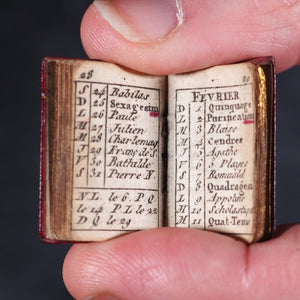 28
S 24 Babilas
D 25 Sexagesim
L 26 Paule
M 27 Julien
M 28 Charlemag
J 29 Franç de S
V 30 Bathilde
S 31 Pierre N
N L le 6 P Q
le 14 P L le 22
D Q le 29
FEVRIER
D 1 Quinquage
L 2 Purification
M 3 Blaise
M 4 Cendres
J 5 Agathe
V 6 5 Playes
S 7 Romuald
D 8 Quadragesi
L 9 Appoline
M 10 Scholastiq
M 11 Quat-Tems